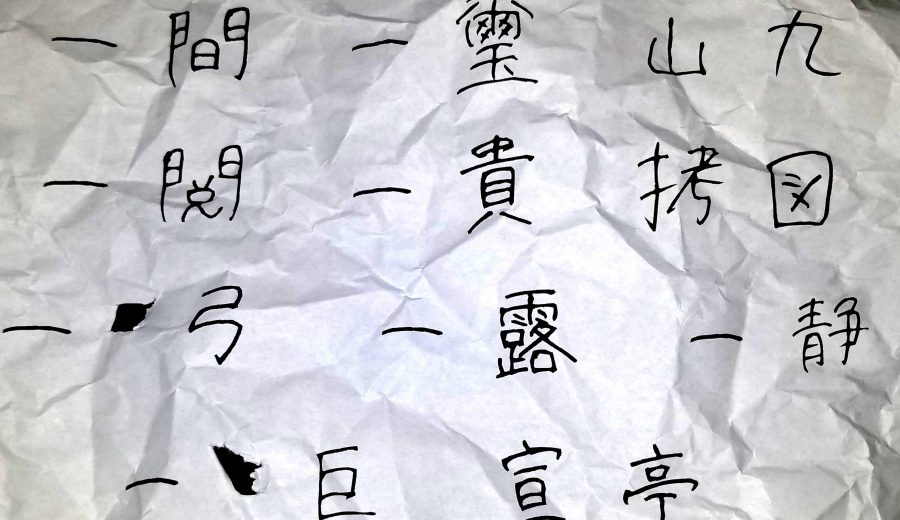 一 間 一 璽 山 九
一 閲 一 貴 拷 図
一 弓 一 露 一 静
一 巨 宣 亭